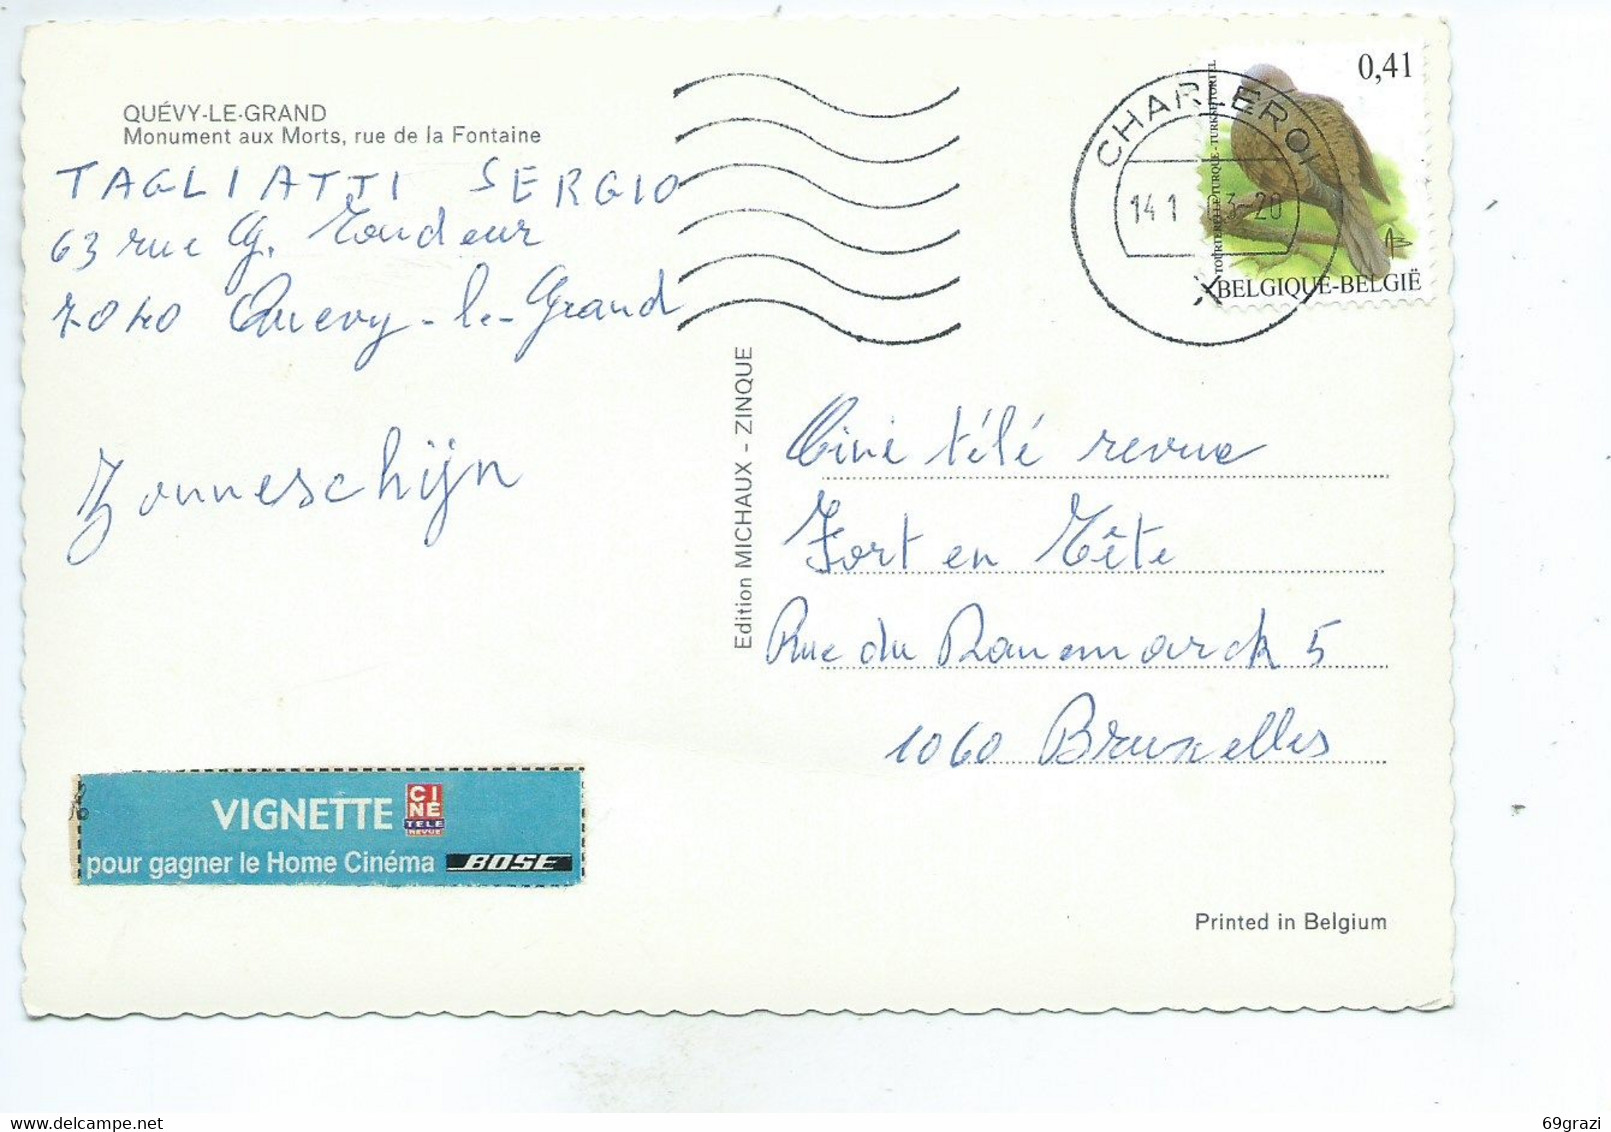 QUÉVY-LE-GRAND
Monument aux Morts, rue de la Fontaine
TAGLIATTI SERGIO
63 rue G. Tondeur
7040 Quevy-le-Grand
Zonneschijn
VIGNETTE CINE TELE REVUE
pour gagner le Home Cinéma BOSE
Edition MICHAUX - ZINQUE
CHARLEROI
14 1 03-20
X
0,41
TOURTERELLE TURQUE - TURKSE TORTEL
AB
BELGIQUE-BELGIË
Ciné télé revue
Fort en Tête
Rue du Danemarck 5
1060 Bruxelles
Printed in Belgium
delcampe.net
69grazi